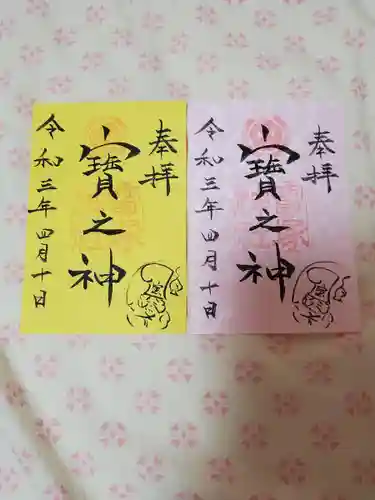 奉拝
寶之神
令和三年四月十日
奉拝
寶之神
令和三年四月十日